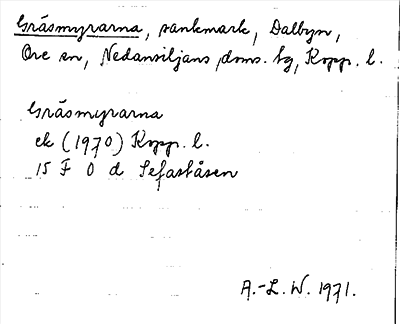 Gräsmyrarna, sankmark, Dalbyn,
Ore sn, Nedansiljans doms. tg, Kopp. l.
Gräsmyrarna
ek (1970) Kopp. l.
15 F 0 d Sefaståsen
A.-L. W. 1971.